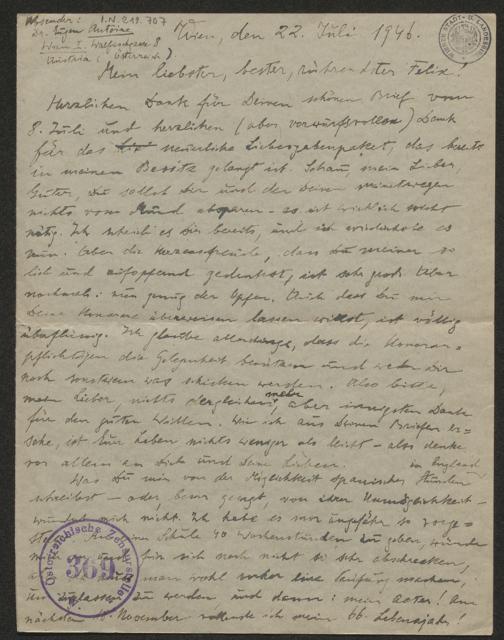 Absender: I.N. 219.707
Dr. Eugen Antoine
Wien I. Walfischgasse 8
Austria (Österreich)
WIENER STADT- U. LANDESBIBL.
Wien, den 22. Juli 1946.
Mein liebster, bester, rührendster Felix!
Herzlichen Dank für Deinen schönen Brief vom
8. Juli und herzlichen (aber vorwurfsvollen) Dank
für das neuerliche Liebesgabenpaket, das bereits
in meinen Besitz gelangt ist. Schau, mein Lieber,
Guter, Du sollst Dir und den Deinen meinetwegen
nichts vom Mund absparen - es ist wirklich nicht
nötig. Ich schrieb es Dir bereits, und ich wiederhole es
nun. Aber die Herzensfreude, dass Du meiner so
lieb und aufopfernd gedenkst, ist sehr groß. Aber
nochmals: nun genug der Opfer. Auch dass Du mir
Deine Honorare überweisen lassen willst, ist völlig
überflüssig. Ich glaube allerdings, dass die Honorar-
pflichtigen die Gelegenheit benützen und weder Dir
noch sonstwem was schicken werden. Also bitte,
mein Lieber, nichts dergleichen mehr, aber innigsten Dank
für den guten Willen. Wie ich aus Deinen Briefen er-
sehe, ist Euer Leben nichts weniger als leicht - also denke
vor allem an Dich und Deine Lieben.
Was Du mir von der Möglichkeit spanischer Stunden in England
schreibst - oder, besser gesagt, von ihrer Unmöglichkeit -
wundert mich nicht. Ich habe es mir ungefähr so vorge-
Schule 40 Wochenstunden zu geben, würde
mich noch nicht so sehr abschrecken,
man wohl vorher eine Prüfung machen,
um zugelassen zu werden und dann: mein Alter! Am
nächsten November vollende ich mein 66. Lebensjahr!
Österreichische Zensurstelle
369